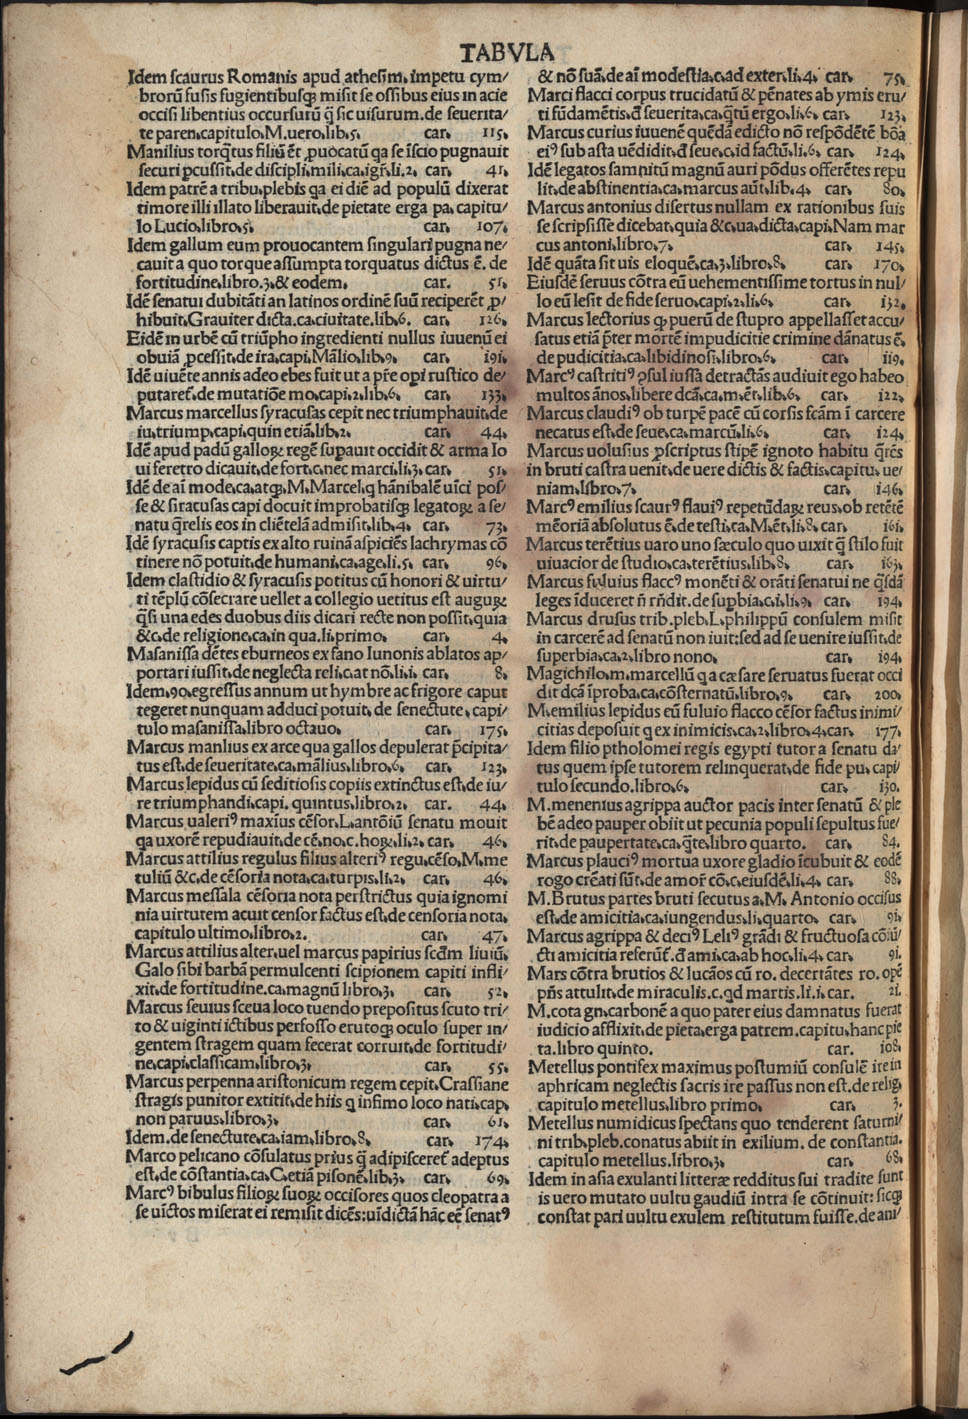 TABVLA
Idem ſcaurus Romanis apud atheſim, impetu cym/
brorū fuſis fugientibuſꝗ miſit ſe oſſibus eius in acie
occiſi libentius occurſurū ꝗ̄ ſic uiſurum.de ſeuerita/
te paren,capitulo,M.uero,lib,5, car, 115,
Manilius torq̄tus filiū ēt ꝓuocatū ꝗa ſe īſcio pugnauit
ſecuri ꝑcuſſit,de diſcipli,mili,ca,igr̄,li.2, car, 41,
Idem patrē a tribu,plebis ꝗa ei diē ad populū dixerat
timore illi illato liberauit,de pietate erga pa, capitu/
lo Lucio,libro,5, car, 107,
Idem gallum eum prouocantem ſingulari pugna ne/
cauit a quo torque aſſumpta torquatus dictus ē. de
fortitudine,libro.3,& eodem, car. 51,
Idē ſenatui dubitāti an latinos ordinē ſuū reciperēt ꝓ/
hibuit,Grauiter dicta.ca,ciuitate.lib,6. car, 126,
Eidē in urbē cū triūpho ingredienti nullus iuuenū ei
obuiā ꝓceſſit,de ira,capi,Māllio,lib,9, car, i9i,
Idē uiuēte annis adeo ebes fuit ut a pr̄e opi ruſtico de/
putaret̄,de mutatiōe mo,capi,2,lib,6, car, 133,
Marcus marcellus ſyracuſas cepit nec triumphauit,de
iu,triump,capi,quin etiā,lib,2, car, 44,
Idē apud padū galloꝝ regē ſuꝑauit occidit & arma Io
ui feretro dicauit,de fort,c,nec marci,li,3,car, 51,
Idē de ai mode,ca,atꝗ,M,Marcel,ꝗ hānibalē uīci poſ/
ſe & ſiracuſas capi docuit improbatiſꝗ legatoꝝ a ſe/
natu q̄relis eos in cliētelā admiſit,lib,4, car, 73,
Idē ſyracuſis captis ex alto ruinā aſpiciēs lachrymas cō
tinere nō potuit,de humani,ca,age,li,5, car, 96,
Idem claſtidio & ſyracuſis potitus cū honori & uirtu/
ti tēplū cōſecrare uellet a collegio uetitus eſt auguꝝ
q̄ſi una edes duobus diis dicari recte non poſſit,quia
&c,de religione,ca,in qua.li,primo, car, 4,
Maſaniſſa dētes eburneos ex fano Iunonis ablatos ap/
portari iuſſit,de neglecta reli,c,at nō,li,i, car, 8,
Idem,90,egreſſus annum ut hymbre ac frigore caput
tegeret nunquam adduci potuit, de ſenectute, capi/
tulo maſaniſſa,libro octauo, car, 175,
Marcus manlius ex arce qua gallos depulerat p̄cipita/
tus eſt,de ſeueritate,ca,mālius,libro,6, car, 123,
Marcus lepidus cū ſeditioſis copiis extinctus eſt,de iu/
re triumphandi,capi. quintus,libro,2, car. 44,
Marcus ualeriꝰ maxius cēſor,L,antōiū ſenatu mouit
ꝗa uxorē repudiauit,de cē,no,c.hoꝝ,li,2, car, 46,
Marcus attilius regulus filius alteriꝰ regu,cēſo,M,me
tuliū &c,de cēſoria nota,ca,turpis,li,2, car, 46,
Marcus meſſala cēſoria nota perſtrictus quia ignomi
nia uirtutem acuit cenſor factus eſt,de cenſoria nota,
capitulo ultimo,libro,2, car, 47,
Marcus attilius alter,uel marcus papirius ſcd̄m liuiū,
Galo ſibi barbā permulcenti ſcipionem capiti infli/
xit,de fortitudine.ca,magnū libro,3, car, 52,
Marcus ſeuius ſceua loco tuendo prepoſitus ſcuto tri/
to & uiginti ictibus perfoſſo erutoꝗ oculo ſuper in/
gentem ſtragem quam fecerat corruit,de fortitudi/
ne,capi,claſſicam,libro,3, car, 55,
Marcus perpenna ariſtonicum regem cepit,Craſſiane
ſtragis punitor extitit,de hiis ꝗ infimo loco nati,cap,
non paruus,libro,3, car, 61,
Idem.de ſenectute,ca,iam,libro,8, car, 174,
Marco pelicano cōſulatus prius ꝗ̄ adipiſceret̄ adeptus
eſt,de cōſtantia,ca,C,etiā piſonē,lib,3, car, 69,
Marcꝰ bibulus filioꝝ ſuoꝝ occiſores quos cleopatra a
ſe uīctos miſerat ei remiſit dicēs:uīdictā hāc eē ſenatꝰ
& nō ſuā,de ai modeſtia,c,ad exter,li,4, car, 75,
Marci flacci corpus trucidatū & pēnates ab ymis eru/
ti fūdamētis,đ ſeuerita,ca,q̄tū ergo,li,6, car, 123,
Marcus curius iuuenē quēdā edicto nō reſpōdētē bōa
eiꝰ ſub aſta uēdidit,đ ſeue,c,id factū,li,6, car, 124,
Idē legatos ſamnitū magnū auri pōdus offerētes repu
lit,de abſtinentia,ca,marcus aūt,lib,4, car, 80,
Marcus antonius diſertus nullam ex rationibus ſuis
ſe ſcripſiſſe dicebat,quia &c,ua,dicta,capi,Nam mar
cus antoni,libro,7, car, 145,
Idē quāta ſit uis eloquē,ca,3,libro,8, car, 170,
Eiuſdē ſeruus cōtra eū uehementiſſime tortus in nul/
lo eū leſit de fide ſeruo,capi,2,li,6, car, i32,
Marcus lectorius ꝙ puerū de ſtupro appellaſſet accu/
ſatus etiā p̄ter mortē impudicitie crimine dānatus ē,
de pudicitia,ca,libidinoſi,libro,6, car, ii9,
Marcꝰ caſtritiꝰ ꝯſul iuſſa detractās audiuit ego habeo
multos ānos,libere dcā,ca,m,ēt,lib,6, car, i22,
Marcus claudiꝰ ob turpē pacē cū corſis fcām ī carcere
necatus eſt,de ſeue,ca,marcū,li,6, car, i24,
Marcus uoluſius ꝓſcriptus ſtipē ignoto habitu q̄rēs
in bruti caſtra uenit,de uere dictis & factis,capitu, ue/
niam,libro,7, car, i46,
Marcꝰ emilius ſcaurꝰ flauiꝰ repetūdaꝝ reus,ob retētē
mēoriā abſolutus ē,de teſti,ca,M,ēt,li,8, car, i6i,
Marcus terētius uaro uno ſæculo quo uixit ꝗ̄ ſtilo fuit
uiuacior de ſtudio,ca,terētius,lib,8, car, i63,
Marcus fuluius flaccꝰ monēti & orāti ſenatui ne q̄ſdā
leges īduceret n̄ rn̄dit.de ſuꝑbia,c,i,li,9, car, 194,
Marcus druſus trib.pleb,L,philippū conſulem miſit
in carcerē ad ſenatū non iuit:ſed ad ſe uenire iuſſit,de
ſuperbia,ca,2,libro nono, car, i94,
Magichilo,m,marcellū ꝗ a cæſare ſeruatus fuerat occi
dit dcā īproba,ca,cōſternatū,libro,9, car, 200,
M,emilius lepidus eū fuluio flacco cēſor factus inimi/
citias depoſuit ꝗ ex inimicis,ca,2,libro,4,car, i77,
Idem filio ptholomei regis egypti tutor a ſenatu da/
tus quem ipſe tutorem relinquerat,de fide pu, capi/
tulo ſecundo.libro,6, car, i30,
M.menenius agrippa auctor pacis inter ſenatū & ple
bē adeo pauper obiit ut pecunia populi ſepultus fue/
rit,de paupertate,ca,q̄te,libro quarto. car, 84,
Marcus plauciꝰ mortua uxore gladio īcubuit & eodē
rogo crēati ſūt,de amor̄ cō,c,eiuſdē,li,4, car, 88,
M.Brutus partes bruti ſecutus a,M, Antonio occiſus
eſt,de amicitia,ca,iungendus,li,quarto, car, 91,
Marcus agrippa & deciꝰ Leliꝰ grādi & fructuoſa cōiū/
cti amicitia referūt̄.đ ami,ca,ab hoc,li,4, car, 91.
Mars cōtra brutios & lucāos cū ro. decertātes ro. opē
pn̄s attulit,de miraculis.c.ꝗd martis.li.i.car. 21.
M.cota gn,carbonē a quo pater eius damnatus fuerat
iudicio afflixit,de pieta,erga patrem.capitu,hanc pie
ta.libro quinto. car. i08,
Metellus pontifex maximus poſtumiū conſulē ire in
aphricam neglectis ſacris ire paſſus non eſt.de relig,
capitulo metellus,libro primo, car, 3,
Metellus numidicus ſpectans quo tenderent ſaturni/
ni trib,pleb.conatus abiit in exilium. de conſtantia.
capitulo metellus.libro,3, car, 68,
Idem in aſia exulanti litteræ redditus ſui tradite ſunt
is uero mutato uultu gaudiū intra ſe cōtinuit: ſicꝗ
conſtat pari uultu exulem reſtitutum fuiſſe.de ani/